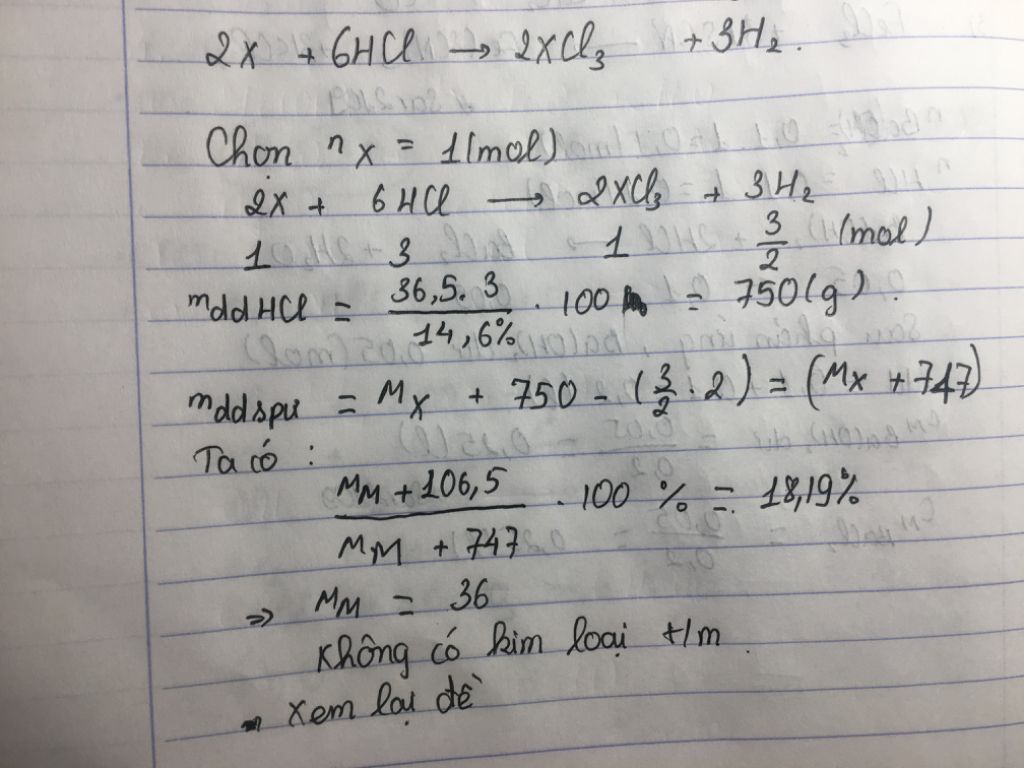 2X + 6HCl → 2XCl₃ + 3H₂.
Chọn nX = 1(mol)
2X + 6HCl → 2XCl₃ + 3H₂
1 3 1 3/2 (mol)
mddHCl = 36,5.3/14,6% . 100 = 750(g).
mddspư = MX + 750 - (3/2 . 2) = (MX + 747)
Ta có :
MM + 106,5/MM + 747 . 100 % = 18,19%
=> MM = 36
Không có kim loại t/m.
- xem lại đề